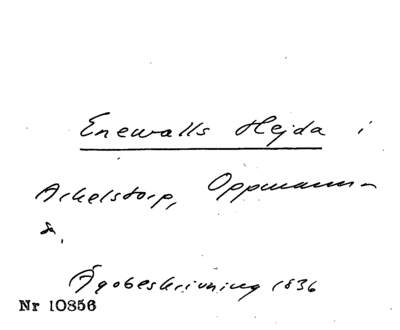 Enewalls Hejda i
Arkelstorp, Oppmanna-
sn.
Ägobeskrivning 1836
Nr 10856